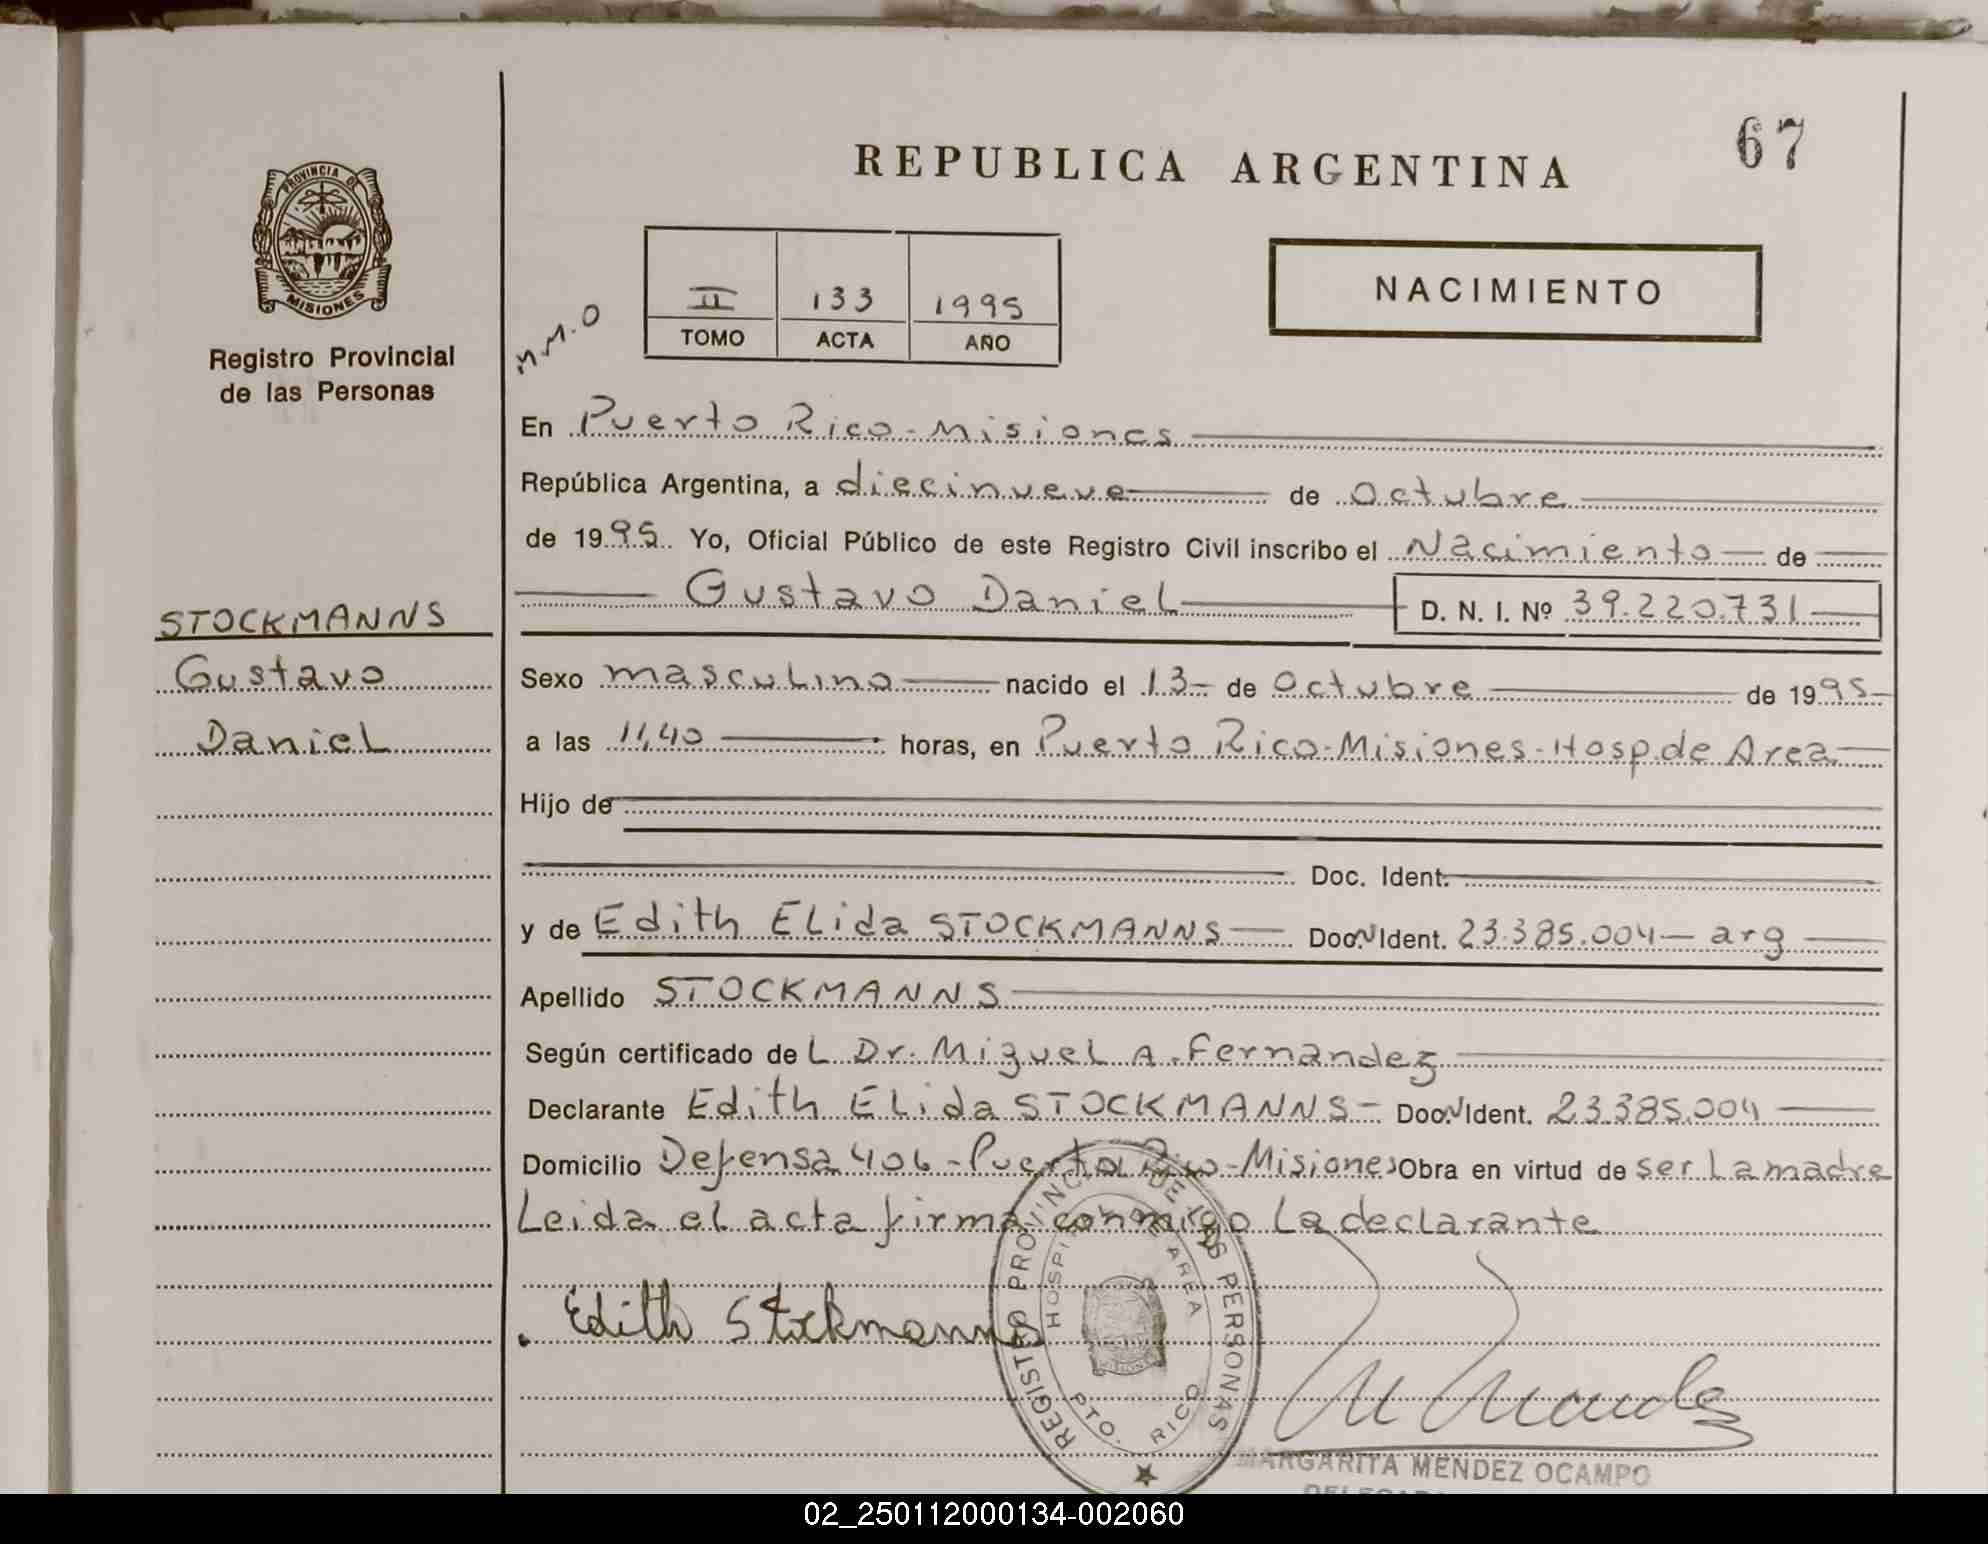 67
REPUBLICA ARGENTINA
PROVINCIA DE
MISIONES
Registro Provincial
de las Personas
II 133 1995
TOMO ACTA AÑO
NACIMIENTO
M.M.O
En Puerto Rico - Misiones
República Argentina, a diecinueve de octubre
de 1995. Yo, Oficial Público de este Registro Civil inscribo el Nacimiento de
Gustavo Daniel D. N. I. Nº 39.220.731
STOCKMANNS
Gustavo
Daniel
Sexo masculino nacido el 13 de octubre de 1995
a las 11,40 horas, en Puerto Rico - Misiones - Hosp. de Area
Hijo de
Doc. Ident.
y de Edith Elida STOCKMANNS Doc. N Ident. 23.385.004 - arg
Apellido STOCKMANNS
Según certificado del Dr. Miguel A. Fernandez
Declarante Edith Elida STOCKMANNS - Doc. N Ident. 23.385.004
Domicilio Defensa 406 - Puerto Rico - Misiones Obra en virtud de ser la madre
Leida el acta firma conmigo la declarante
Edith Stockmanns
REGISTRO PROVINCIAL DE LAS PERSONAS
HOSPITAL DE AREA
PTO. RICO
MARGARITA MENDEZ OCAMPO
02_250112000134-002060